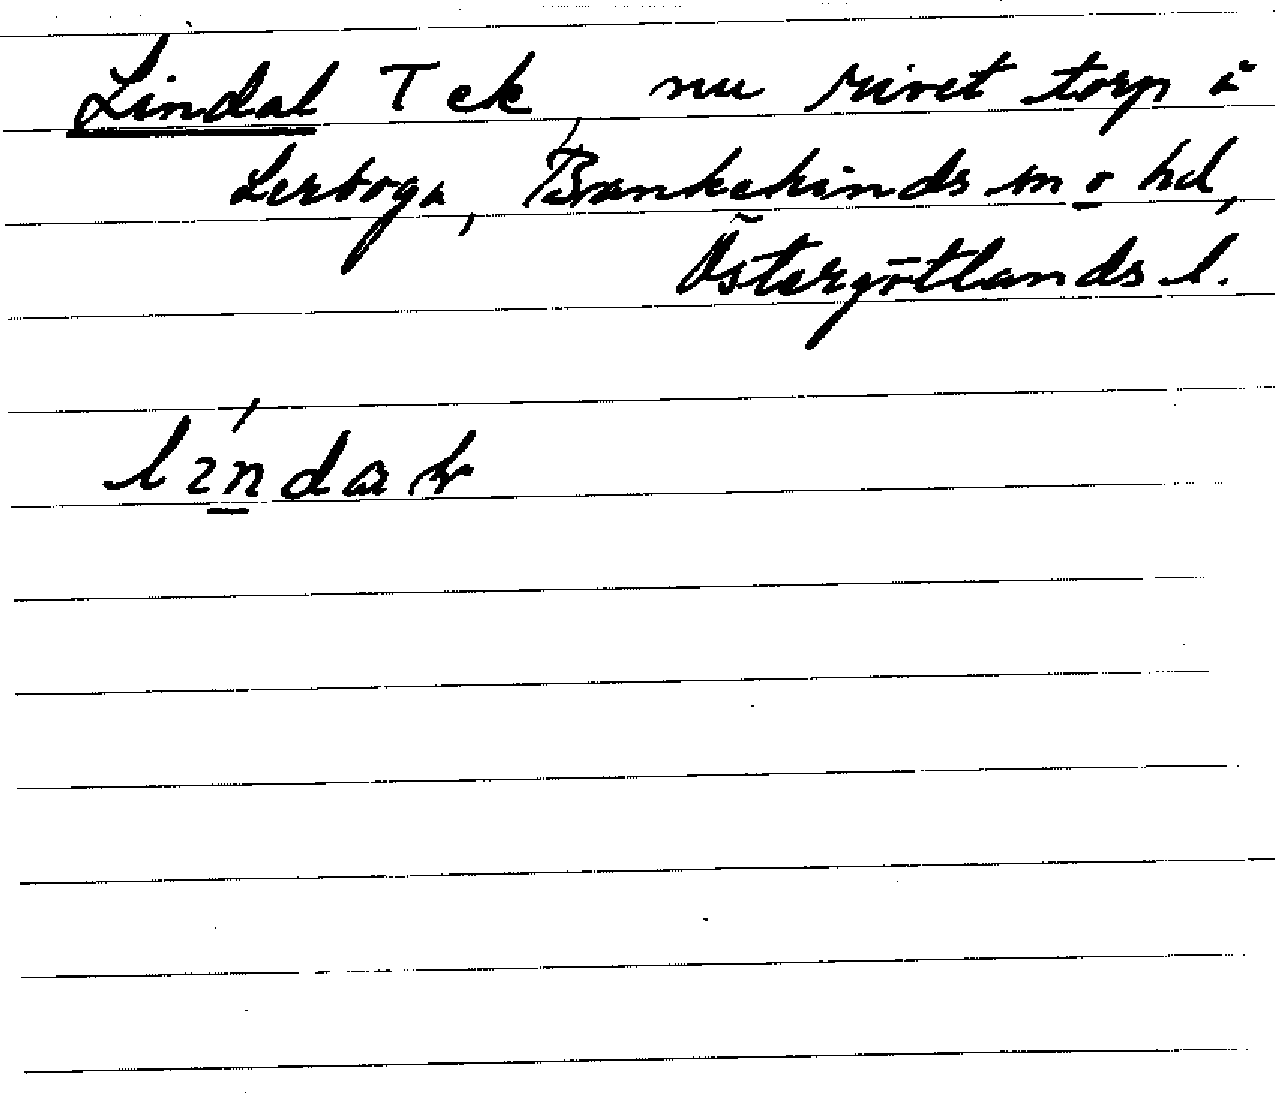 Lindal T ek, nu rivet torp å
Lerboga, Bankekinds sn o hd,
Östergötlands l.